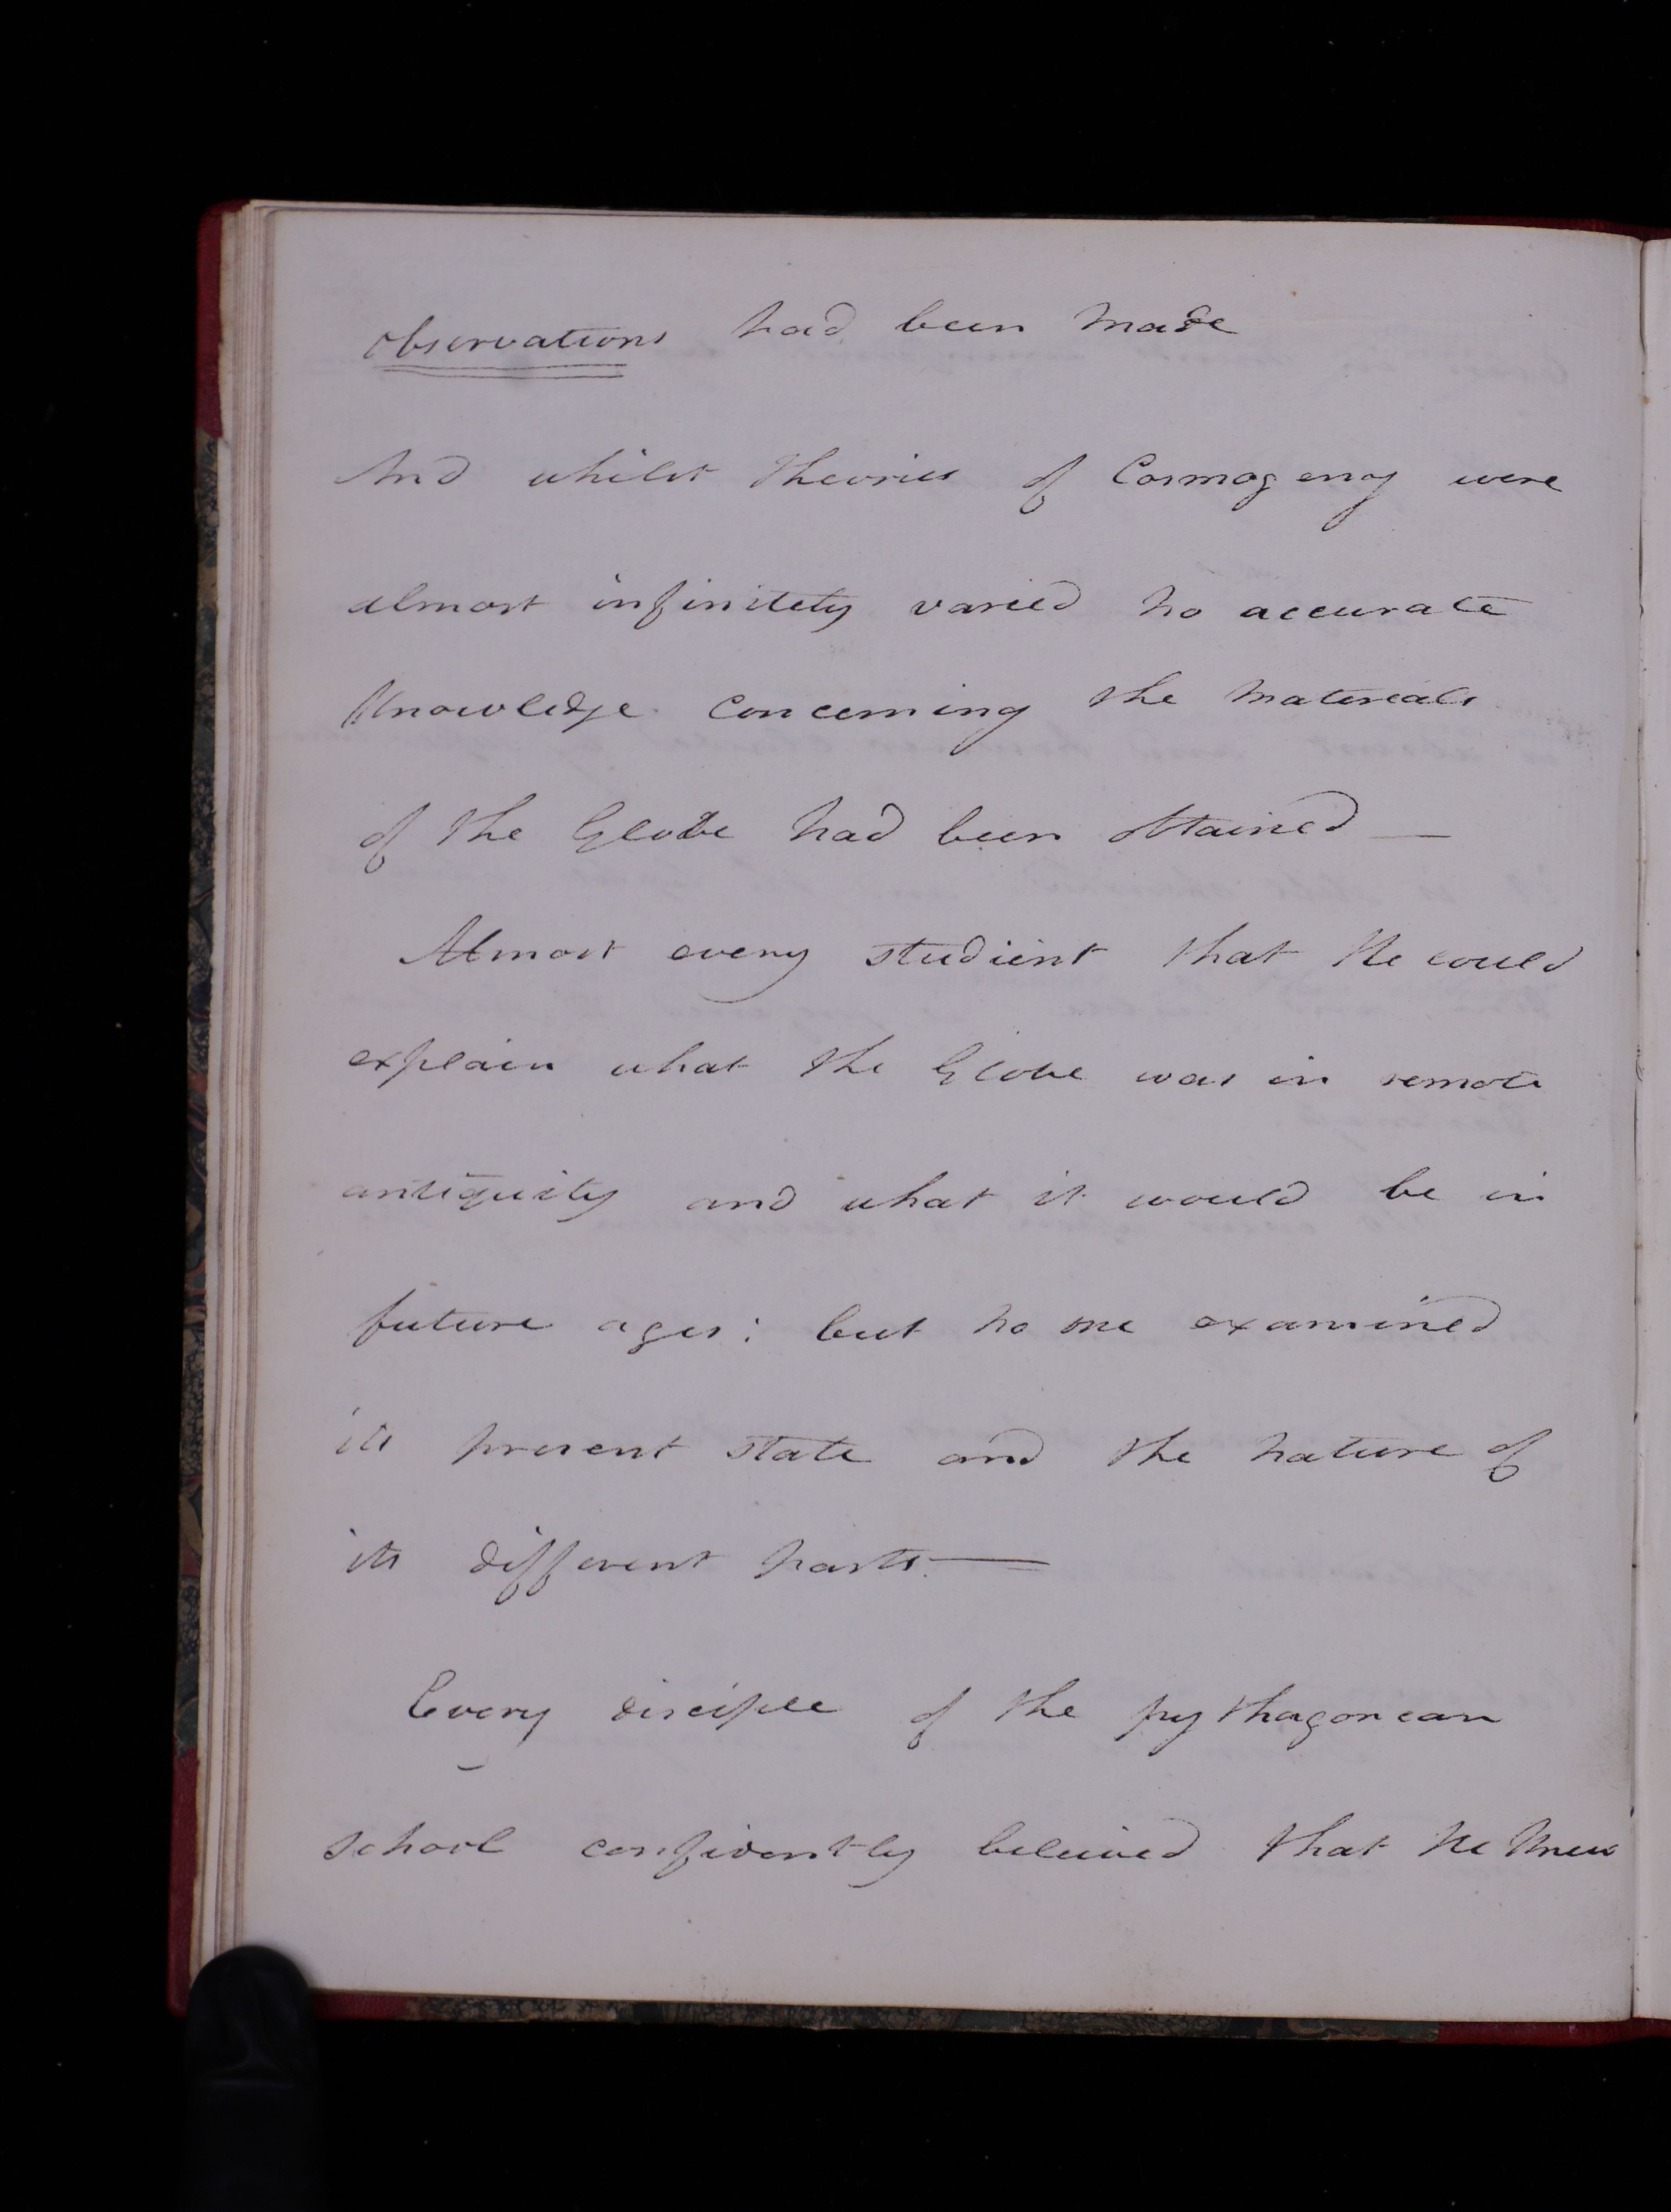 observations had been made
And whilst theories of Cosmogeny were
almost infinitely varied no accurate
Knowledge concerning the materials
of the Globe had been obtained —
Almost every studient that He could
explain what the Globe was in remote
antiquity and what it would be in
future ages: but no one examined
its present state and the nature of
its different parts. —
Every disciple of the pythagorean
school confidently beleived that He knew